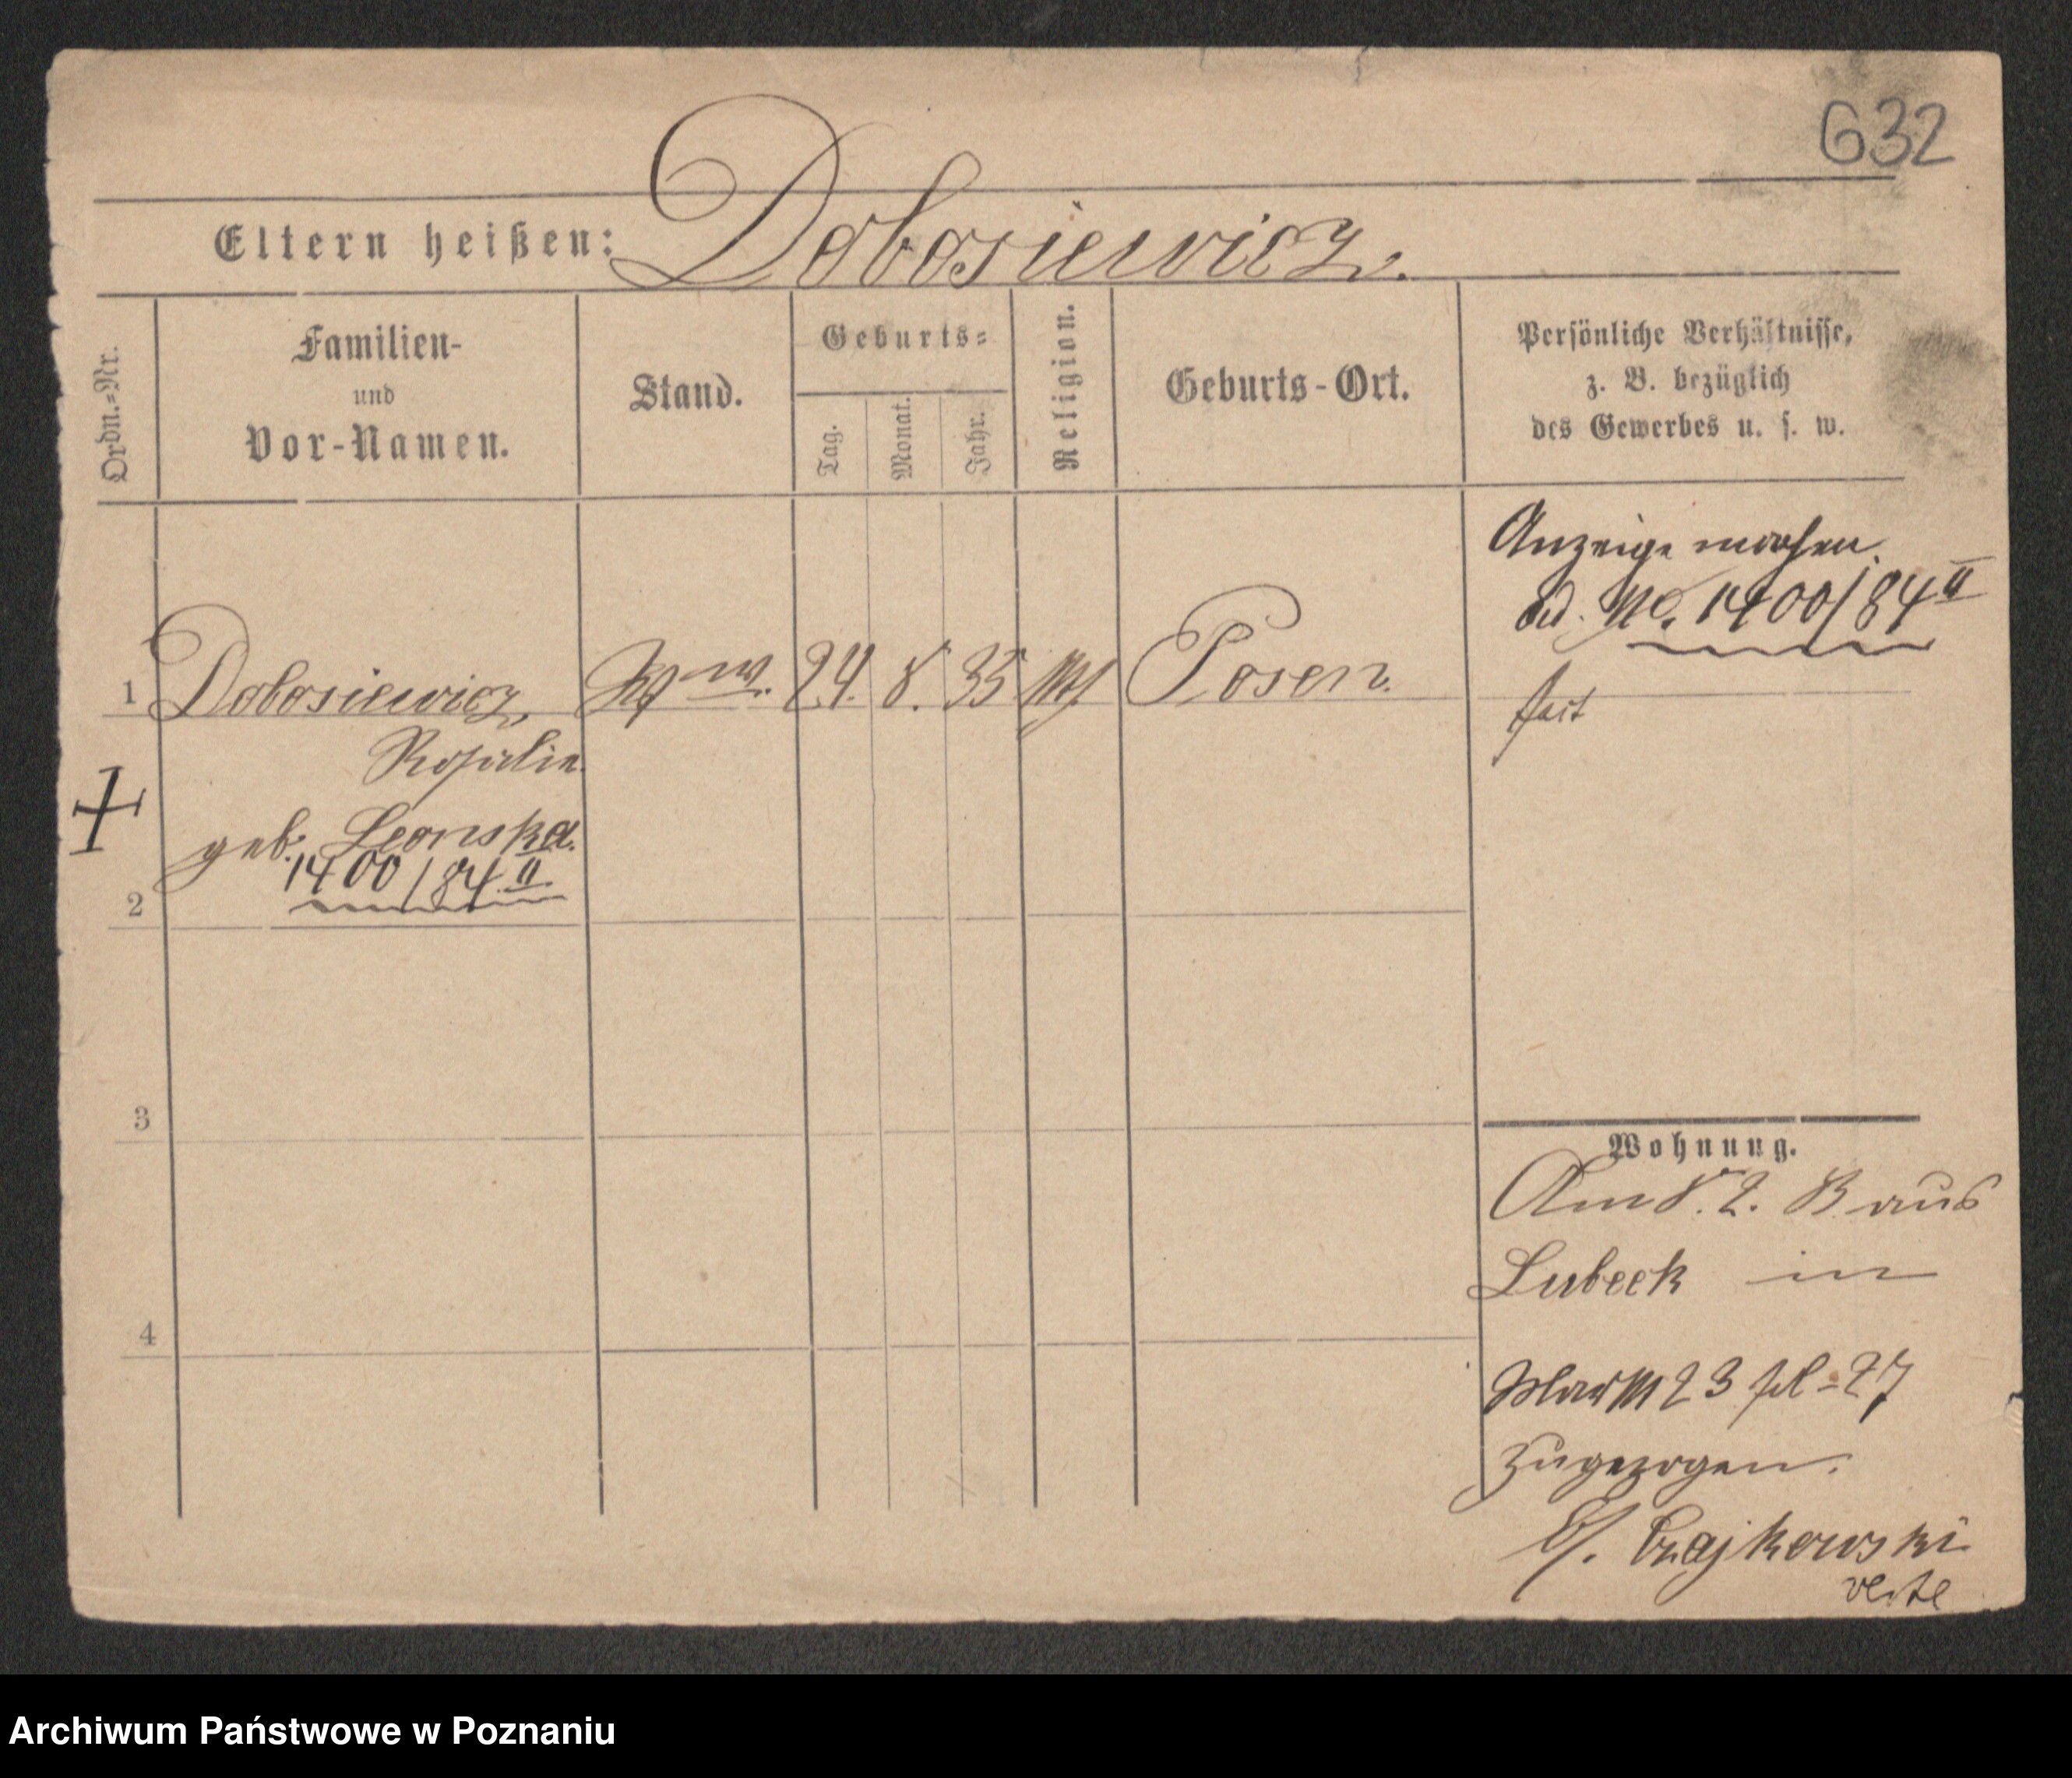 632
Eltern heißen: Dobosiewicz.
Ordn.=Nr.
Familien-
und
Vor-Namen.
Stand.
Geburts=
Tag.
Monat.
Jahr.
Religion.
Geburts-Ort.
Persönliche Verhältnisse,
z. B. bezüglich
des Gewerbes u. s. w.
Anzeige machen.
ad. No. 1400/84 II
1 Dobosiewicz, 24. 8. 35 Posen.
Rosalie
geb. Leonska.
1400/84 II
2
3
4
Wohnung.
Am 8. 2. 83 aus
Lubeck in
23 27
zugezogen.
Czajkowski
verte
Archiwum Państwowe w Poznaniu